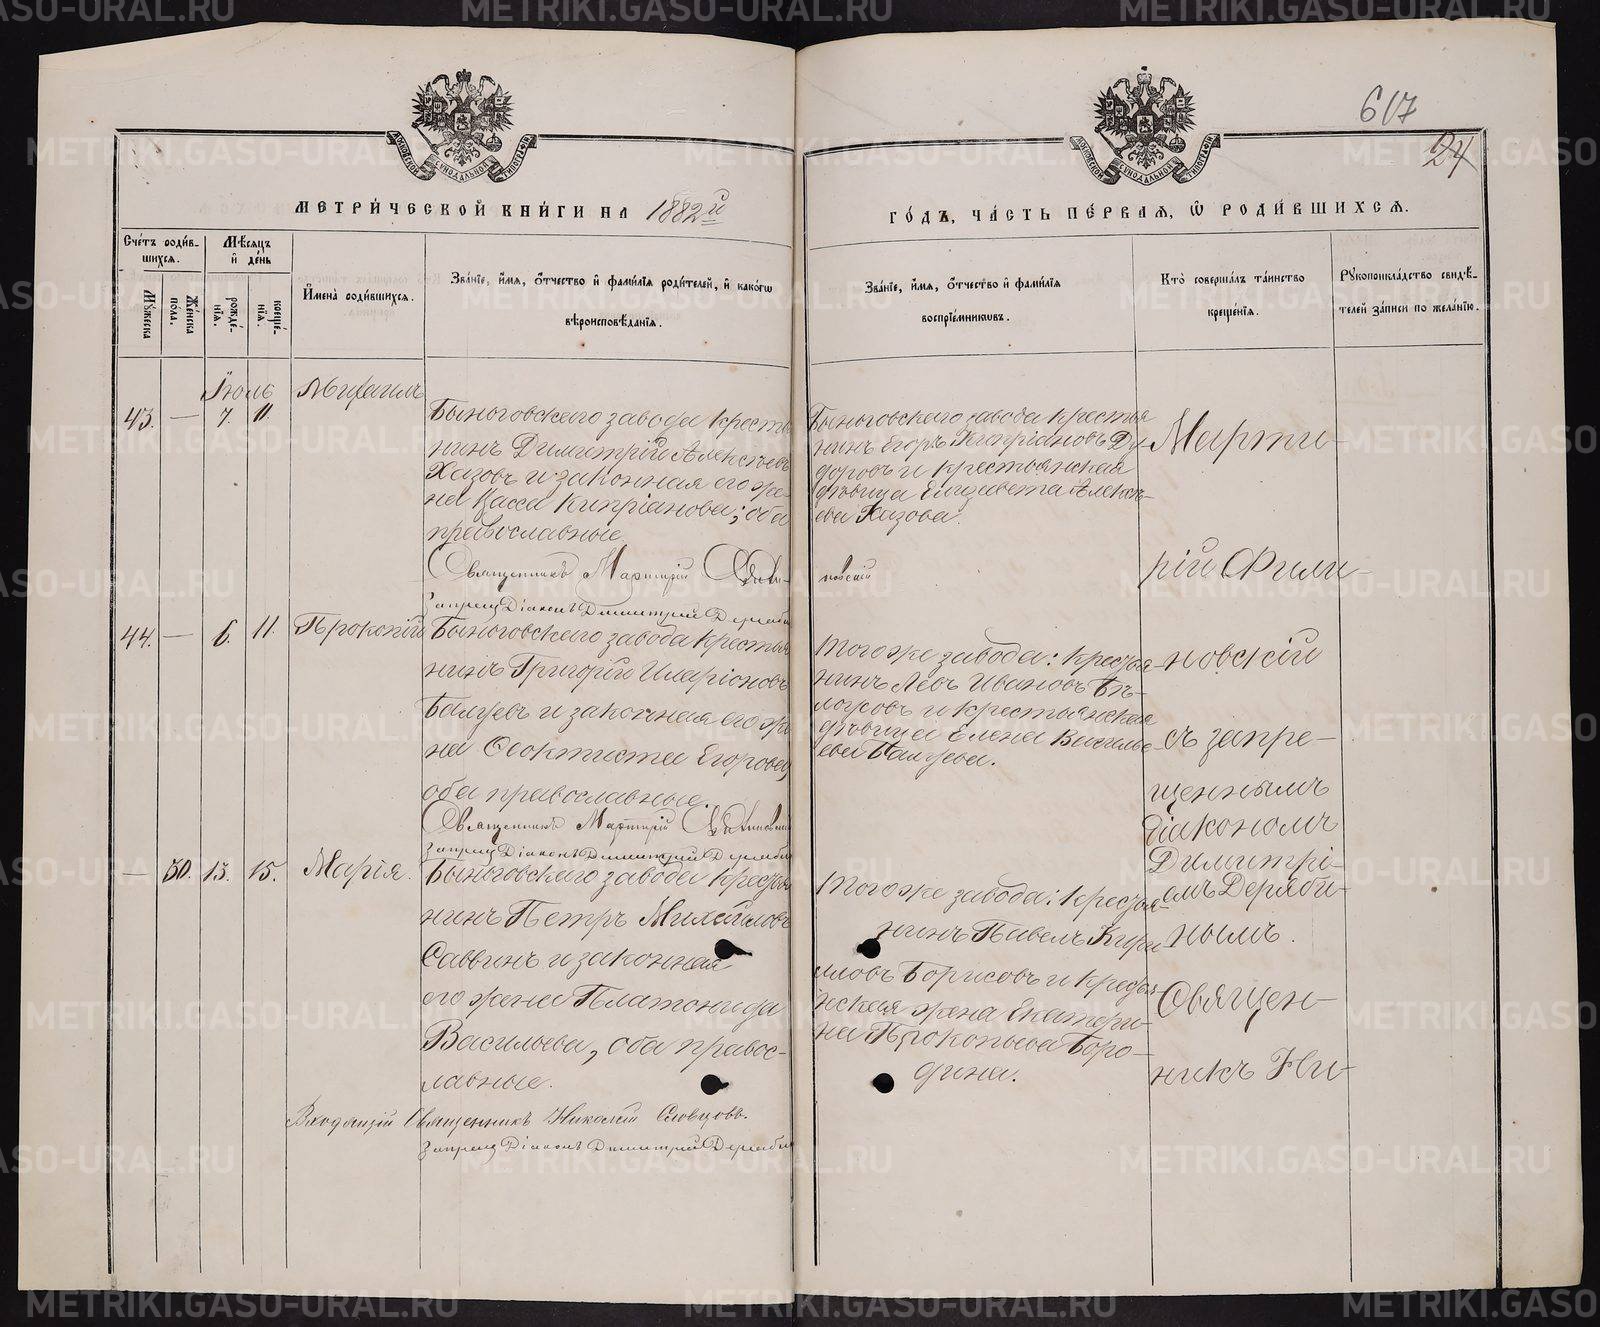 617
24
МЕТРИ́ЧЕСКОЙ КНИ́ГИ НА 1882й
ГО́ДЪ, ЧА́СТЬ ПЕ́РВАЯ, Ѽ РОДИ́ВШИХСЯ.
Сче́тъ роди́в-
шихся.
Мꙋжеска
Же́нска
по́ла.
Мѣ́сяцъ
и̑ де́нь
рожде́-
нїя.
креще́-
нїя.
И̑мена̀ роди́вшихся.
Зва́нїе, и́мя, ѻ́тчество и̑ фами́лїя роди́телей, и̑ како́гѡ
вѣроисповѣ́данїя.
Зва́нїе, и́мя, ѻ́тчество и̑ фами́лїя
воспрїе́мниковъ.
Кто̀ соверша́лъ та́инство
креще́нїя.
Рꙋкоприкла́дство свидѣ́-
телей за́писи по жела́нїю.
Іюль
43. — 7. 11. Михаилъ
Быньговскаго завода кресть
нинъ Димитрій Алексѣевъ
Хазовъ и законная его же-
на Васса Кипріанова; оба
православные.
Священникъ Мартирій Филип-
Запрещ Діаконъ Димитрій Деряби
Быньговскаго завода крестья
нинъ Егоръ Кипріановъ Ду-
доровъ и крестьянская
дѣвица Елизавета Алексѣ-
ева Хазова.
новскій
44. — 6. 11. Прокопій
Быньговскаго завода крестья
нинъ Григорій Иларіоновъ
Балуевъ и законная его же
на Ѳеоктиста Егорова,
оба православные.
Священникъ Мартирій
Запрещ Діаконъ Димитрій Деряби
Того же завода: крестья-
нинъ Левъ Ивановъ Бѣ-
лоусовъ и крестьянская
дѣвица Елена Василье-
ева Балуева.
— 50. 13. 15. Марія.
Быньговскаго завода крестья
нинъ Петръ Михайловъ
Саввинъ и законная
его жена Платонида
Васильева, оба правос-
лавные.
Входящій Священникъ Николай Словцовъ.
Запрещ Діаконъ Димитрій Деряби
Того же завода: крестья-
нинъ Павелъ Кири
ловъ Борисовъ и крестья-
нская жена Екатери-
на Прокопьева Боро-
дина.
Марти-
рій Фили-
новскій
съ запре-
щеннымъ
діакономъ
Димитрі-
емъ Деряби-
нымъ.
Священ-
никъ Ни-
METRIKI.GASO-URAL.RU